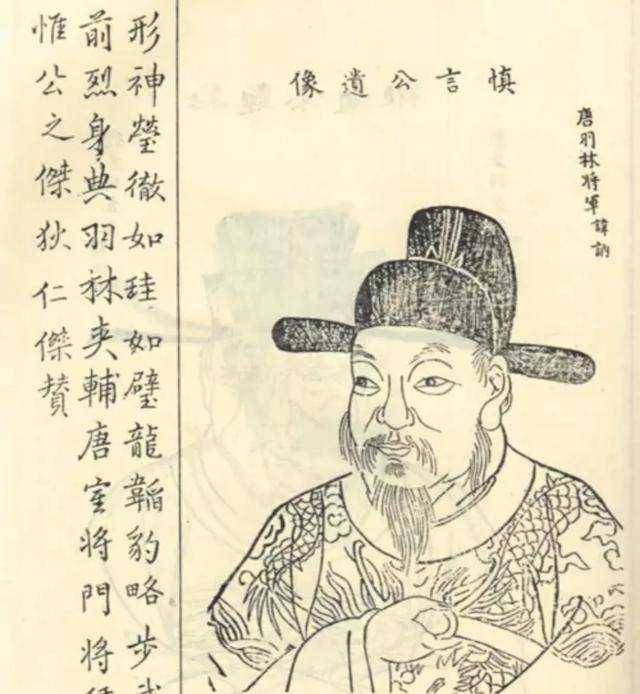 唐羽林將軍諱訥
慎言公遺像
形神瑩徹如珪如璧龍韜豹略步
前烈身典羽林夾輔唐室將門將
惟公之傑狄仁傑贊